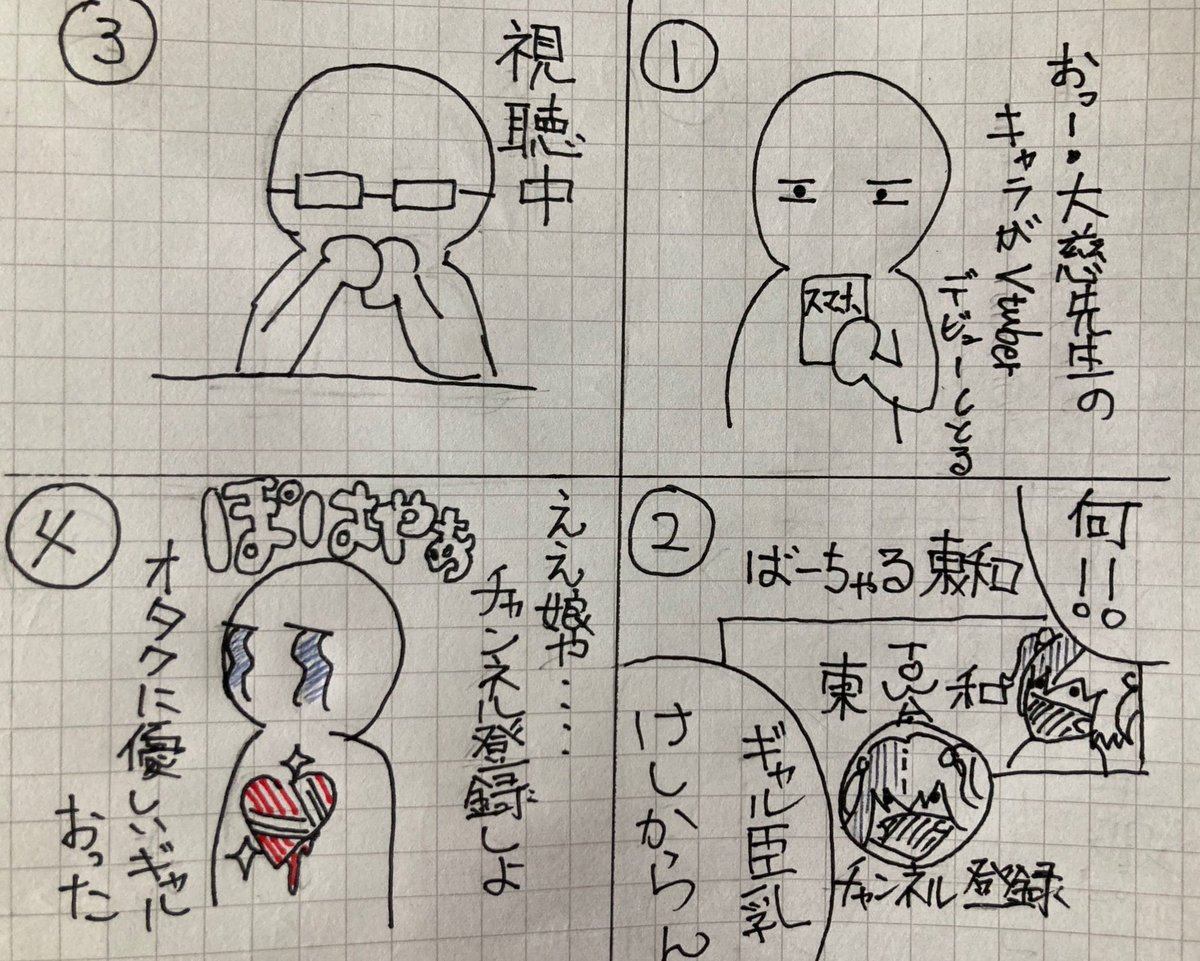 ①
おっー・大慈先生の
キャラがVtuber
デビューしとる
スマホ
②
何!!
ばーちゃる東和
東 和
チャンネル登録
ギャル巨乳
けしからん
③
視聴中
④
ええ娘や‥‥
チャンネル登録しよ
オタクに優しいギャル
おった